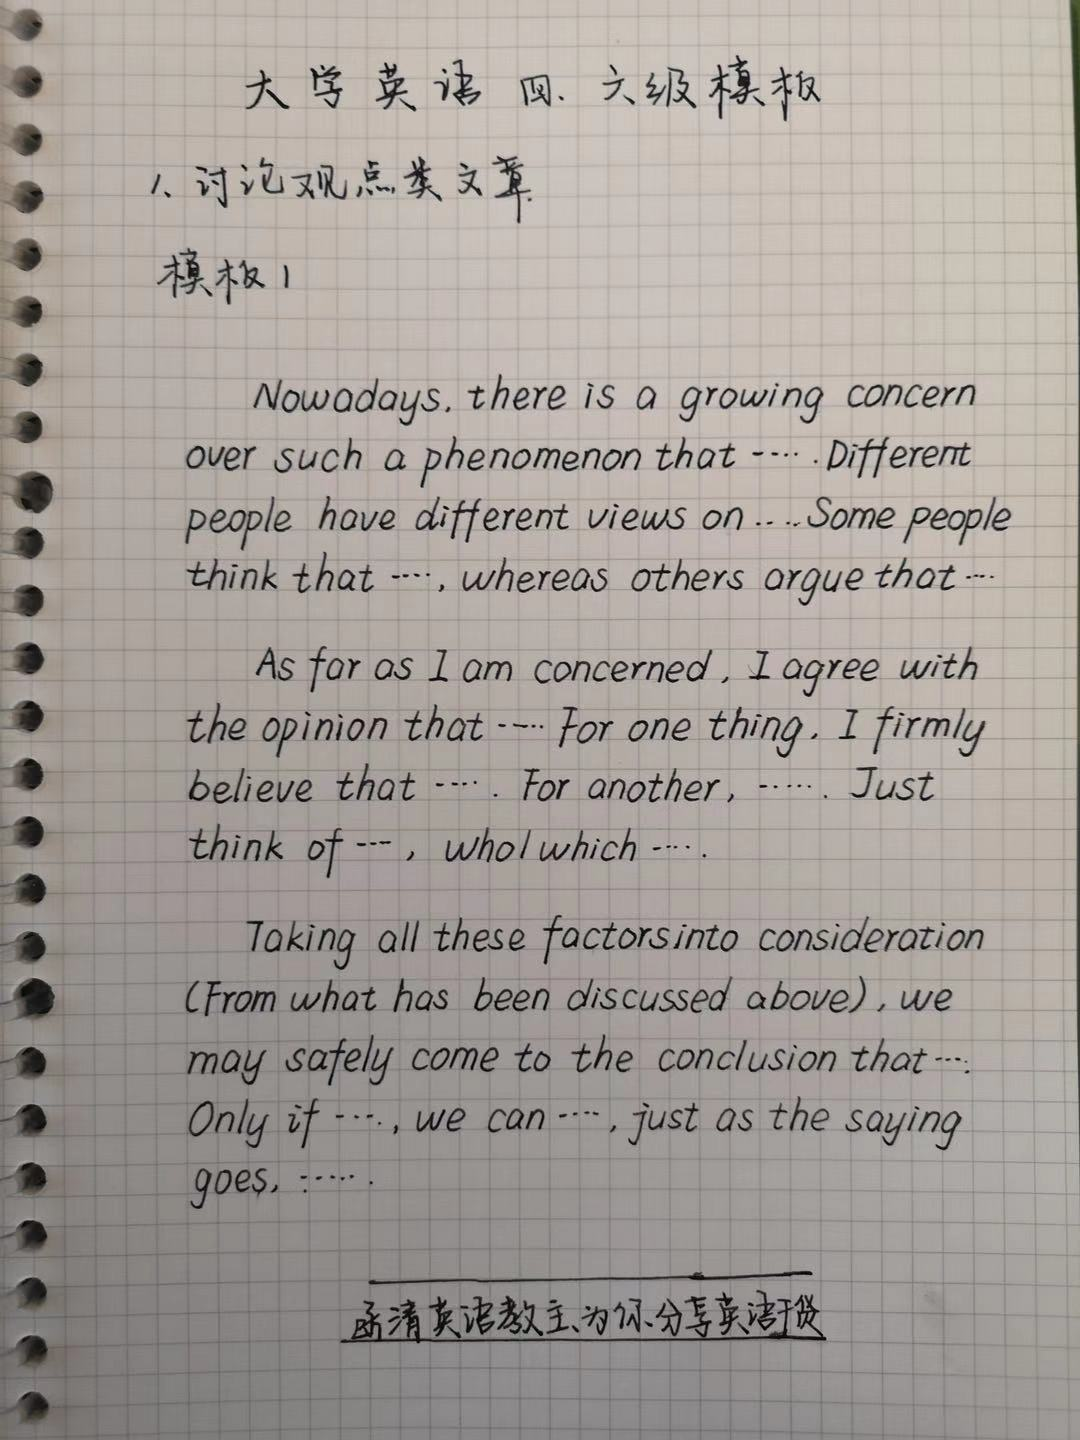 大学英语四、六级模板
1、讨论观点类文章
模板1
Nowadays, there is a growing concern
over such a phenomenon that ----. Different
people have different views on .... Some people
think that ----, whereas others argue that ---
As far as I am concerned, I agree with
the opinion that ---- For one thing, I firmly
believe that ----. For another, ------. Just
think of ---, who/which ----.
Taking all these factors into consideration
(From what has been discussed above), we
may safely come to the conclusion that ---.
Only if ----, we can ----, just as the saying
goes, ------.
清英语教主、为你分享英语干货